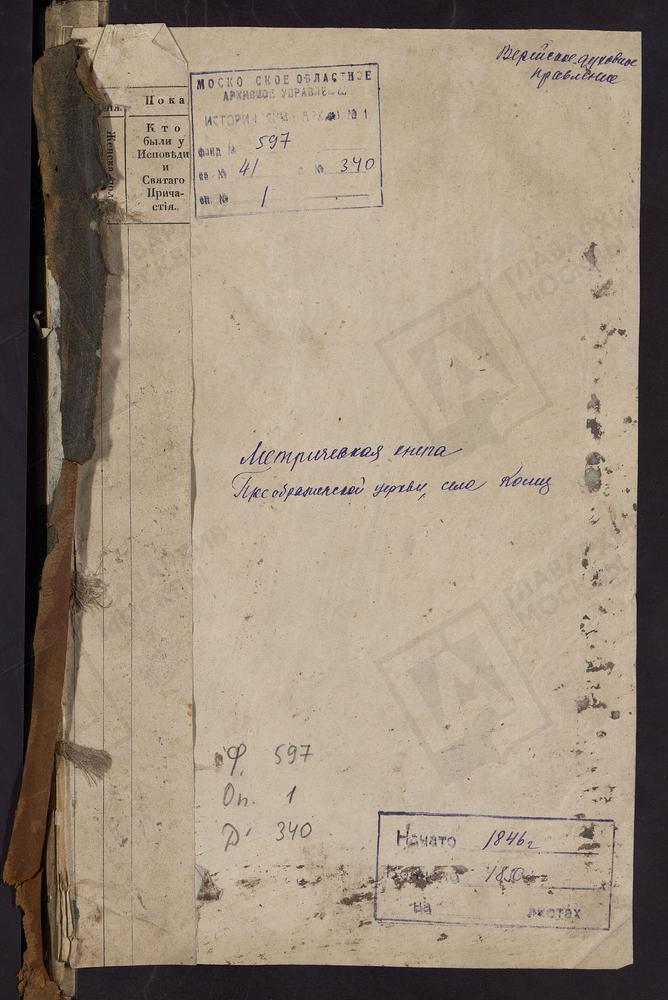 Верейское духовное
правление
МОСКОВСКОЕ ОБЛАСТНОЕ
АРХИВНОЕ УПРАВЛЕНИЕ
ИСТОРИЧЕСКИЙ АРХИВ № 1
фонд № 597
св. № 41 № 340
оп. № 1
Пока
Кто
были у
Исповѣди
и
Святаго
Прича-
стія.
Метрическая книга
Преображенской церкви, село
Ф. 597
Оп. 1
Д. 340
Начато 1846 г
Кончено 1850 г
на листах
ГЛАВАРХИВ
МОСКВЫ
ГЛАВАРХИВ
МОСКВЫ